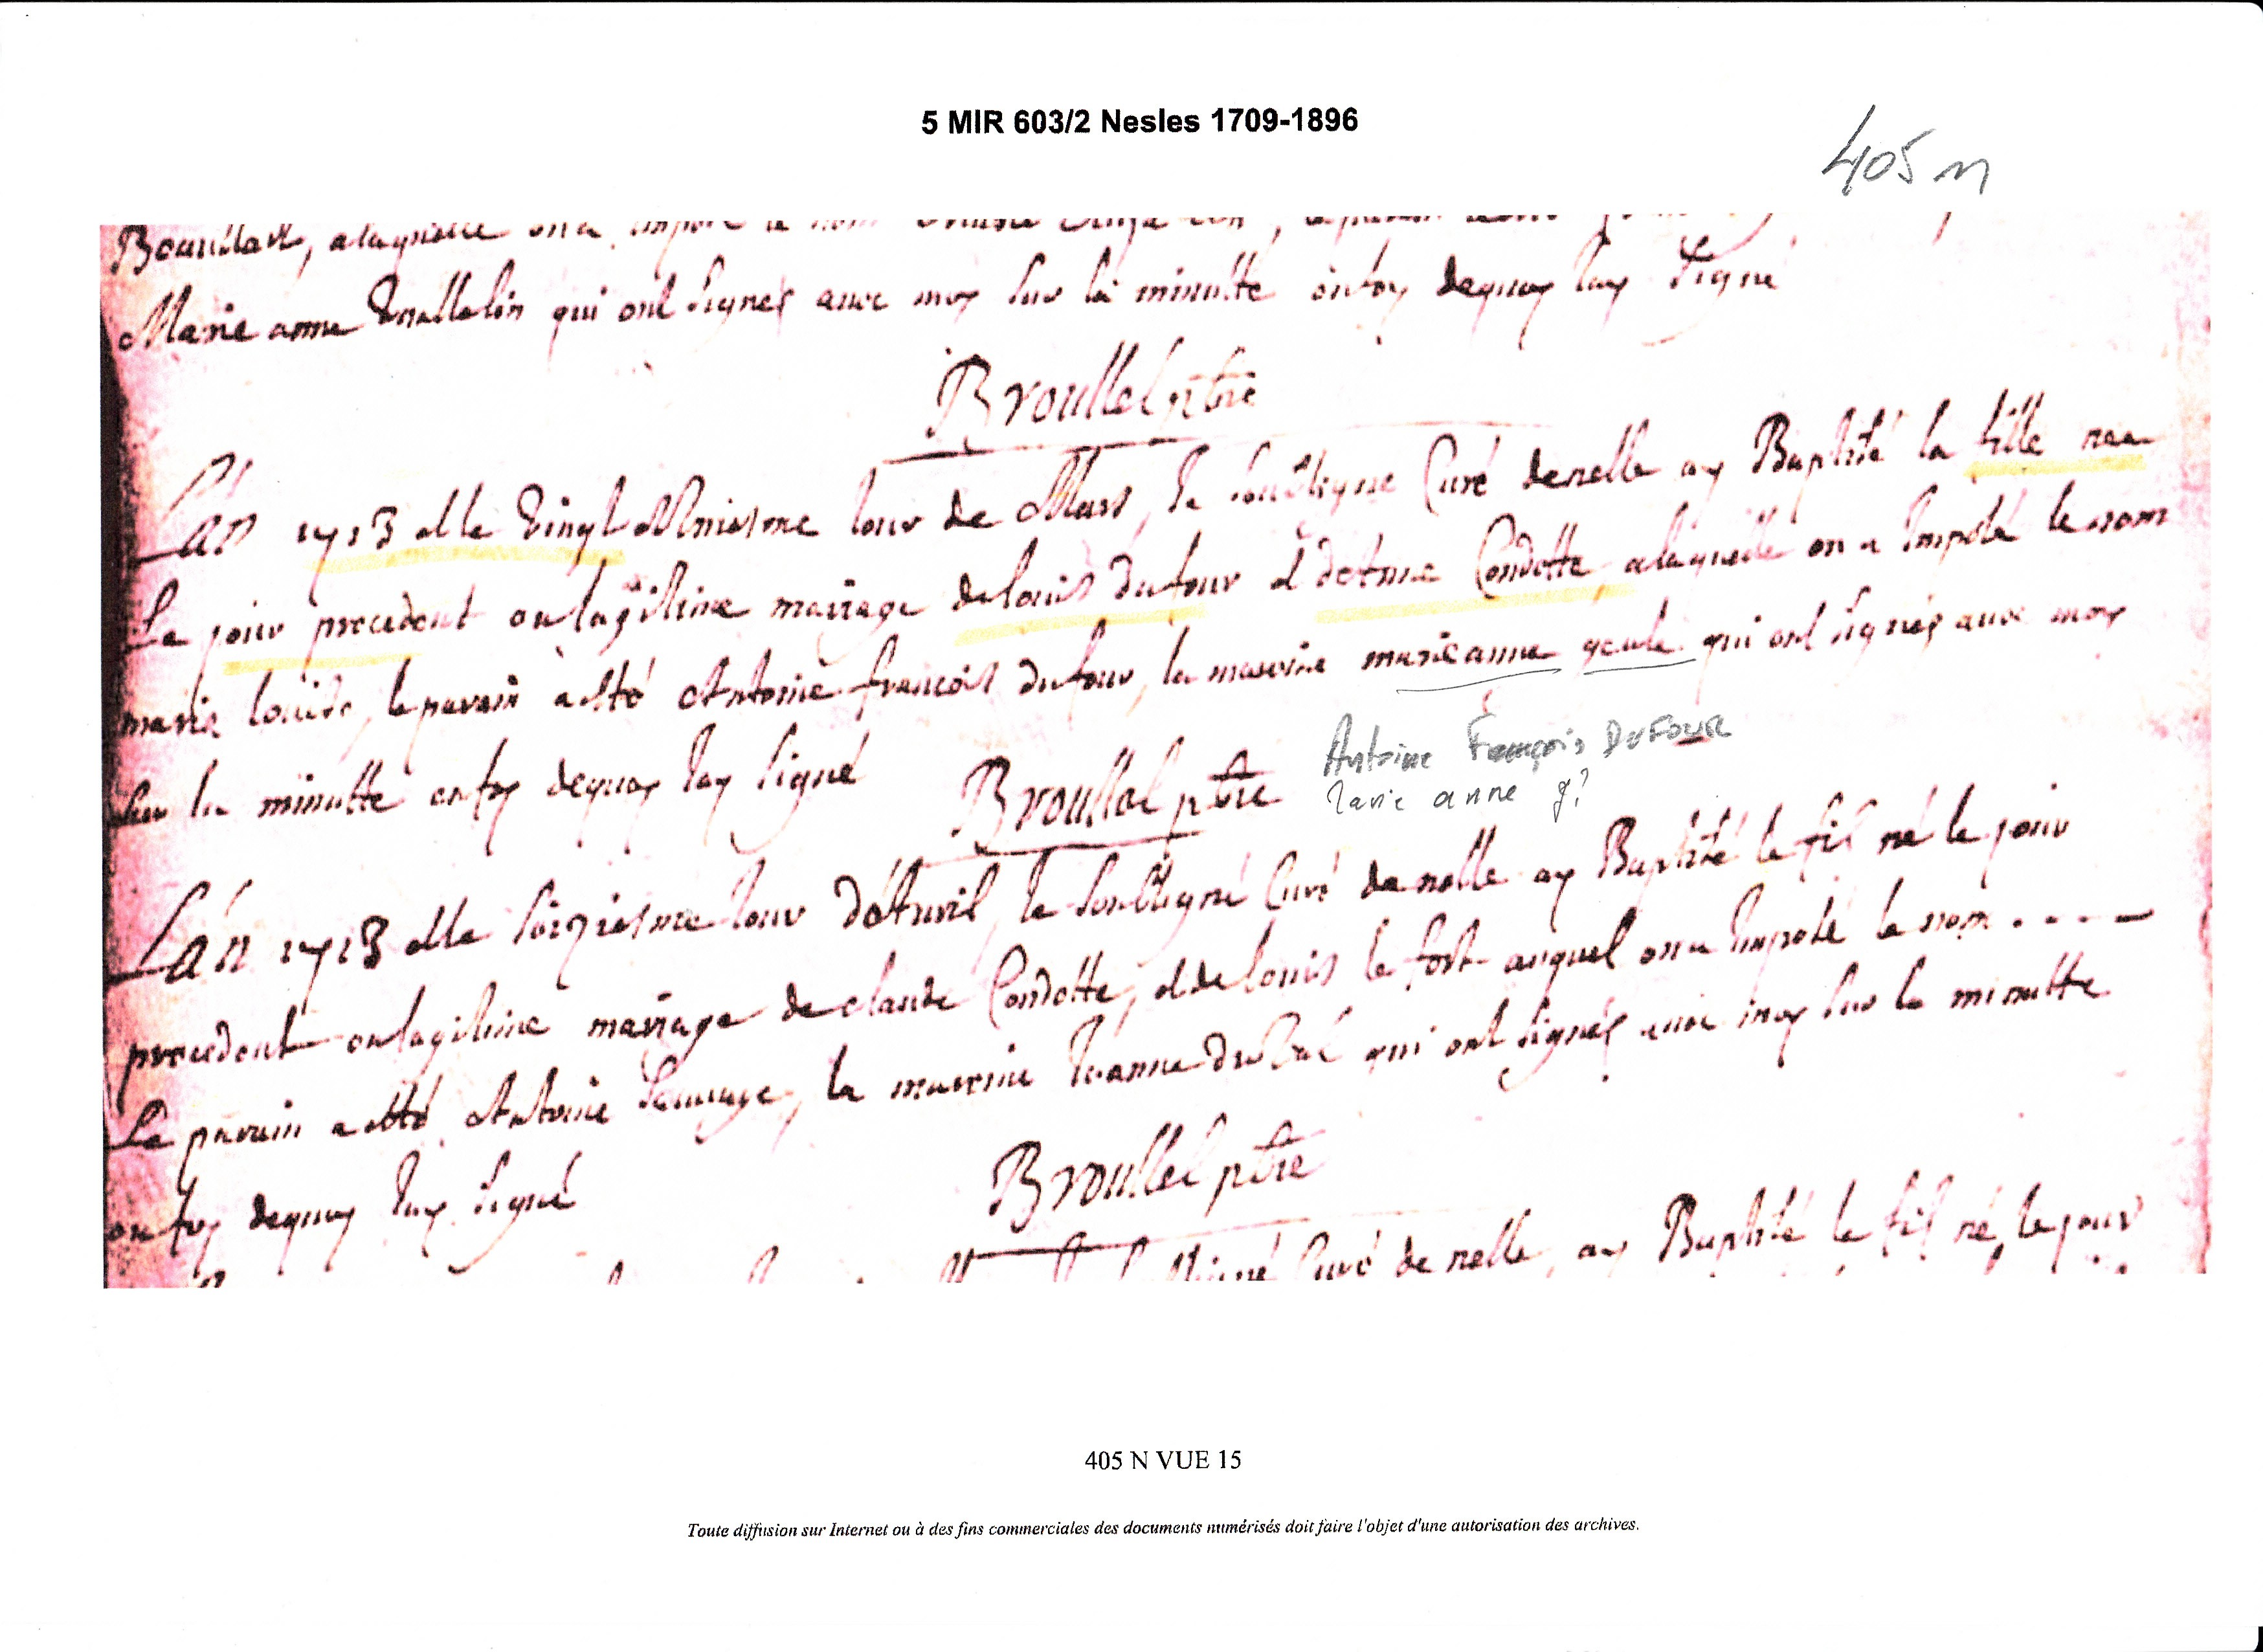 5 MIR 603/2 Nesles 1709-1896
405 n
Bouillart, alaquelle on a imposé le nom
Marie anne qui ont signés avec moy sur la minutte en foy dequoy Jay Signé
Broullel ptre
L'an 1713 et le vingt Jour de Mars, Je soubsigné Curé de nelle ay Baptisé la fille née
Le jour precedent en lagitime mariage de louis dufour et d'Anne Condette, alaquelle on a Imposé le nom
marie louise, le parain a esté Antoine francois dufour, la maroine marie anne qui ont signés avec moy
Sur la minutte en foy dequoy Jay Signé
Broullel ptre
Antoine François DUFOUR
Marie anne g?
L'an 1713 et le seiziesme Jour d'Avril, Je soubsigné Curé de nelle ay Baptisé le fil né le jour
precedent en lagitime mariage de claude Condette, et de louis le fort auquel on a Imposé le nom . . . .
Le parain a esté Antoine Sauvage, la maroine Jeanne qui ont signés avec moy sur la minutte
en foy dequoy Jay Signé
Broullel ptre
Curé de nelle, ay Baptisé le fil né le jour
405 N VUE 15
Toute diffusion sur Internet ou à des fins commerciales des documents numérisés doit faire l'objet d'une autorisation des archives.